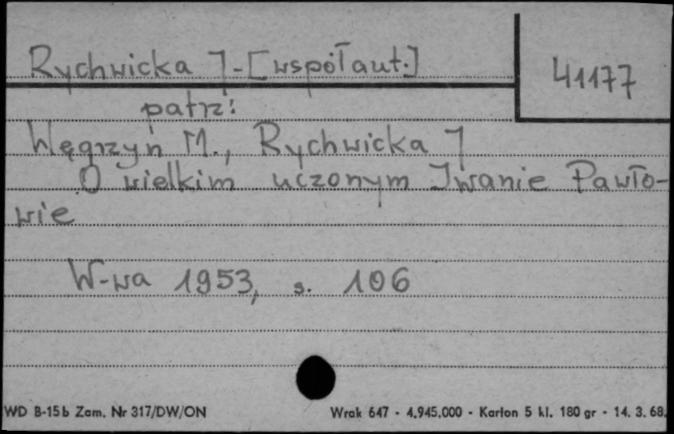 Rychwicka J-[współaut.]
41177
patrz:
Węgrzyn M., Rychwicka J
O wielkim uczonym Iwanie Pawło-
wie
W-wa 1953, s. 106
WD B-15b Zam. Nr 317/DW/ON
Wrak 647 - 4.945.000 - Karton 5 kl. 180 gr - 14. 3. 68.